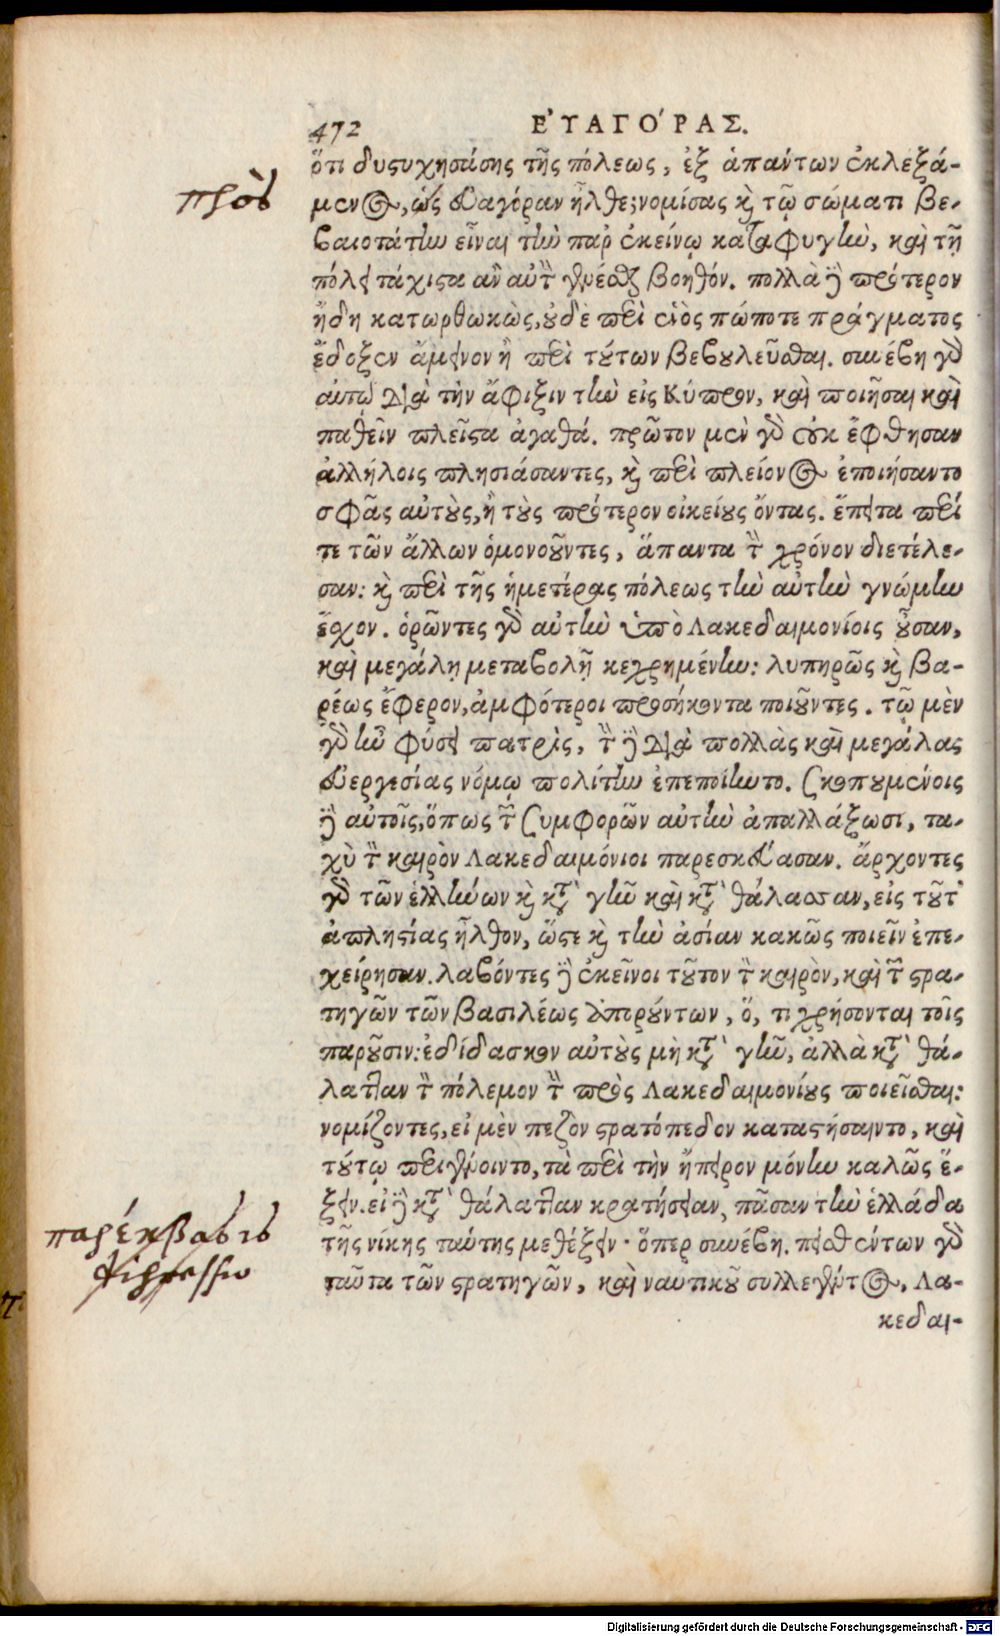 472 ΕὐΑΓΌΡΑΣ.
ὅτι δυςυχησάσης τῆς πόλεως, ἐξ ἁπάντων ἐκλεξά-
πρὸς
μεν⊙, ὡς Εὐαγόραν ἦλθε; νομίσας κỳ τῷ σώματι βε-
βαιοτάτην εἶναι τὴν παρ' ἐκείνῳ καταφυγὴν, καὶ τῇ
πόλει τάχιςα ἂν αὐτὸν γενέσθαι βοηθόν. πολλὰ δὲ πρότερον
ἤδη κατωρθωκὼς, οὐδὲ περὶ ἑνὸς πώποτε πράγματος
ἔδοξεν ἄμεινον ἢ περὶ τούτων βεβουλεῦσθαι. συνέβη γὰρ
αὐτῷ διὰ τὴν ἄφιξιν τὴν εἰς Κύπρον, καὶ ποιῆσαι καὶ
παθεῖν πλεῖςα ἀγαθά. πρῶτον μὲν γὰρ οὐκ ἔφθησαν
ἀλλήλοις πλησιάσαντες, καὶ περὶ πλείονος ἐποιήσαντο
σφᾶς αὐτοὺς, ἢ τοὺς πρότερον οἰκείους ὄντας. ἔπειτα περί
τε τῶν ἄλλων ὁμονοοῦντες, ἅπαντα τὸν χρόνον διετέλε-
σαν: καὶ περὶ τῆς ἡμετέρας πόλεως τὴν αὐτὴν γνώμην
ἔχον. ὁρῶντες γὰρ αὐτὴν ὑπὸ Λακεδαιμονίοις οὖσαν,
καὶ μεγάλῃ μεταβολῇ κεχρημένην: λυπηρῶς καὶ βα-
ρέως ἔφερον, ἀμφότεροι προσήκοντα ποιοῦντες. τῷ μὲν
γὰρ ἦν φύσει πατρὶς, τὸν δὲ διὰ πολλὰς καὶ μεγάλας
εὐεργεσίας νόμῳ πολίτην ἐπεποίηντο. σκοπουμένοις
δὲ αὐτοῖς, ὅπως τῶν συμφορῶν αὐτὴν ἀπαλλάξωσι, τα-
χὺ τὸν καιρὸν Λακεδαιμόνιοι παρεσκεύασαν. ἄρχοντες
γὰρ τῶν ἑλλήνων καὶ κατὰ γῆν καὶ κατὰ θάλασσαν, εἰς τοῦτ'
ἀπληςίας ἦλθον, ὥςε καὶ τὴν ἀσίαν κακῶς ποιεῖν ἐπε-
χείρησαν. λαβόντες δὲ ἐκεῖνοι τοῦτον τὸν καιρὸν, καὶ τῶν ςρα-
τηγῶν τῶν βασιλέως ἀπορούντων, ὅ, τι χρήσονται τοῖς
παροῦσιν: ἐδίδασκον αὐτοὺς μὴ κατὰ γῆν, ἀλλὰ κατὰ θά-
λατταν τὸν πόλεμον τὸν πρὸς Λακεδαιμονίους ποιεῖσθαι:
νομίζοντες, εἰ μὲν πεζὸν ςρατόπεδον καταςήσαιντο, καὶ
τούτῳ περιγένοιντο, τὰ περὶ τὴν ἤπειρον μόνην καλῶς ἕ-
ξειν. εἰ δὲ κατὰ θάλατταν κρατήσειαν, πᾶσαν τὴν ἑλλάδα
παρέκβασις
τῆς νίκης ταύτης μεθέξειν· ὅπερ συνέβη. πεισθέντων γὰρ
ταῦτα τῶν ςρατηγῶν, καὶ ναυτικοῦ συλλεγέντος, Λα-
κεδαι-
Digitalisierung gefördert durch die Deutsche Forschungsgemeinschaft - DFG